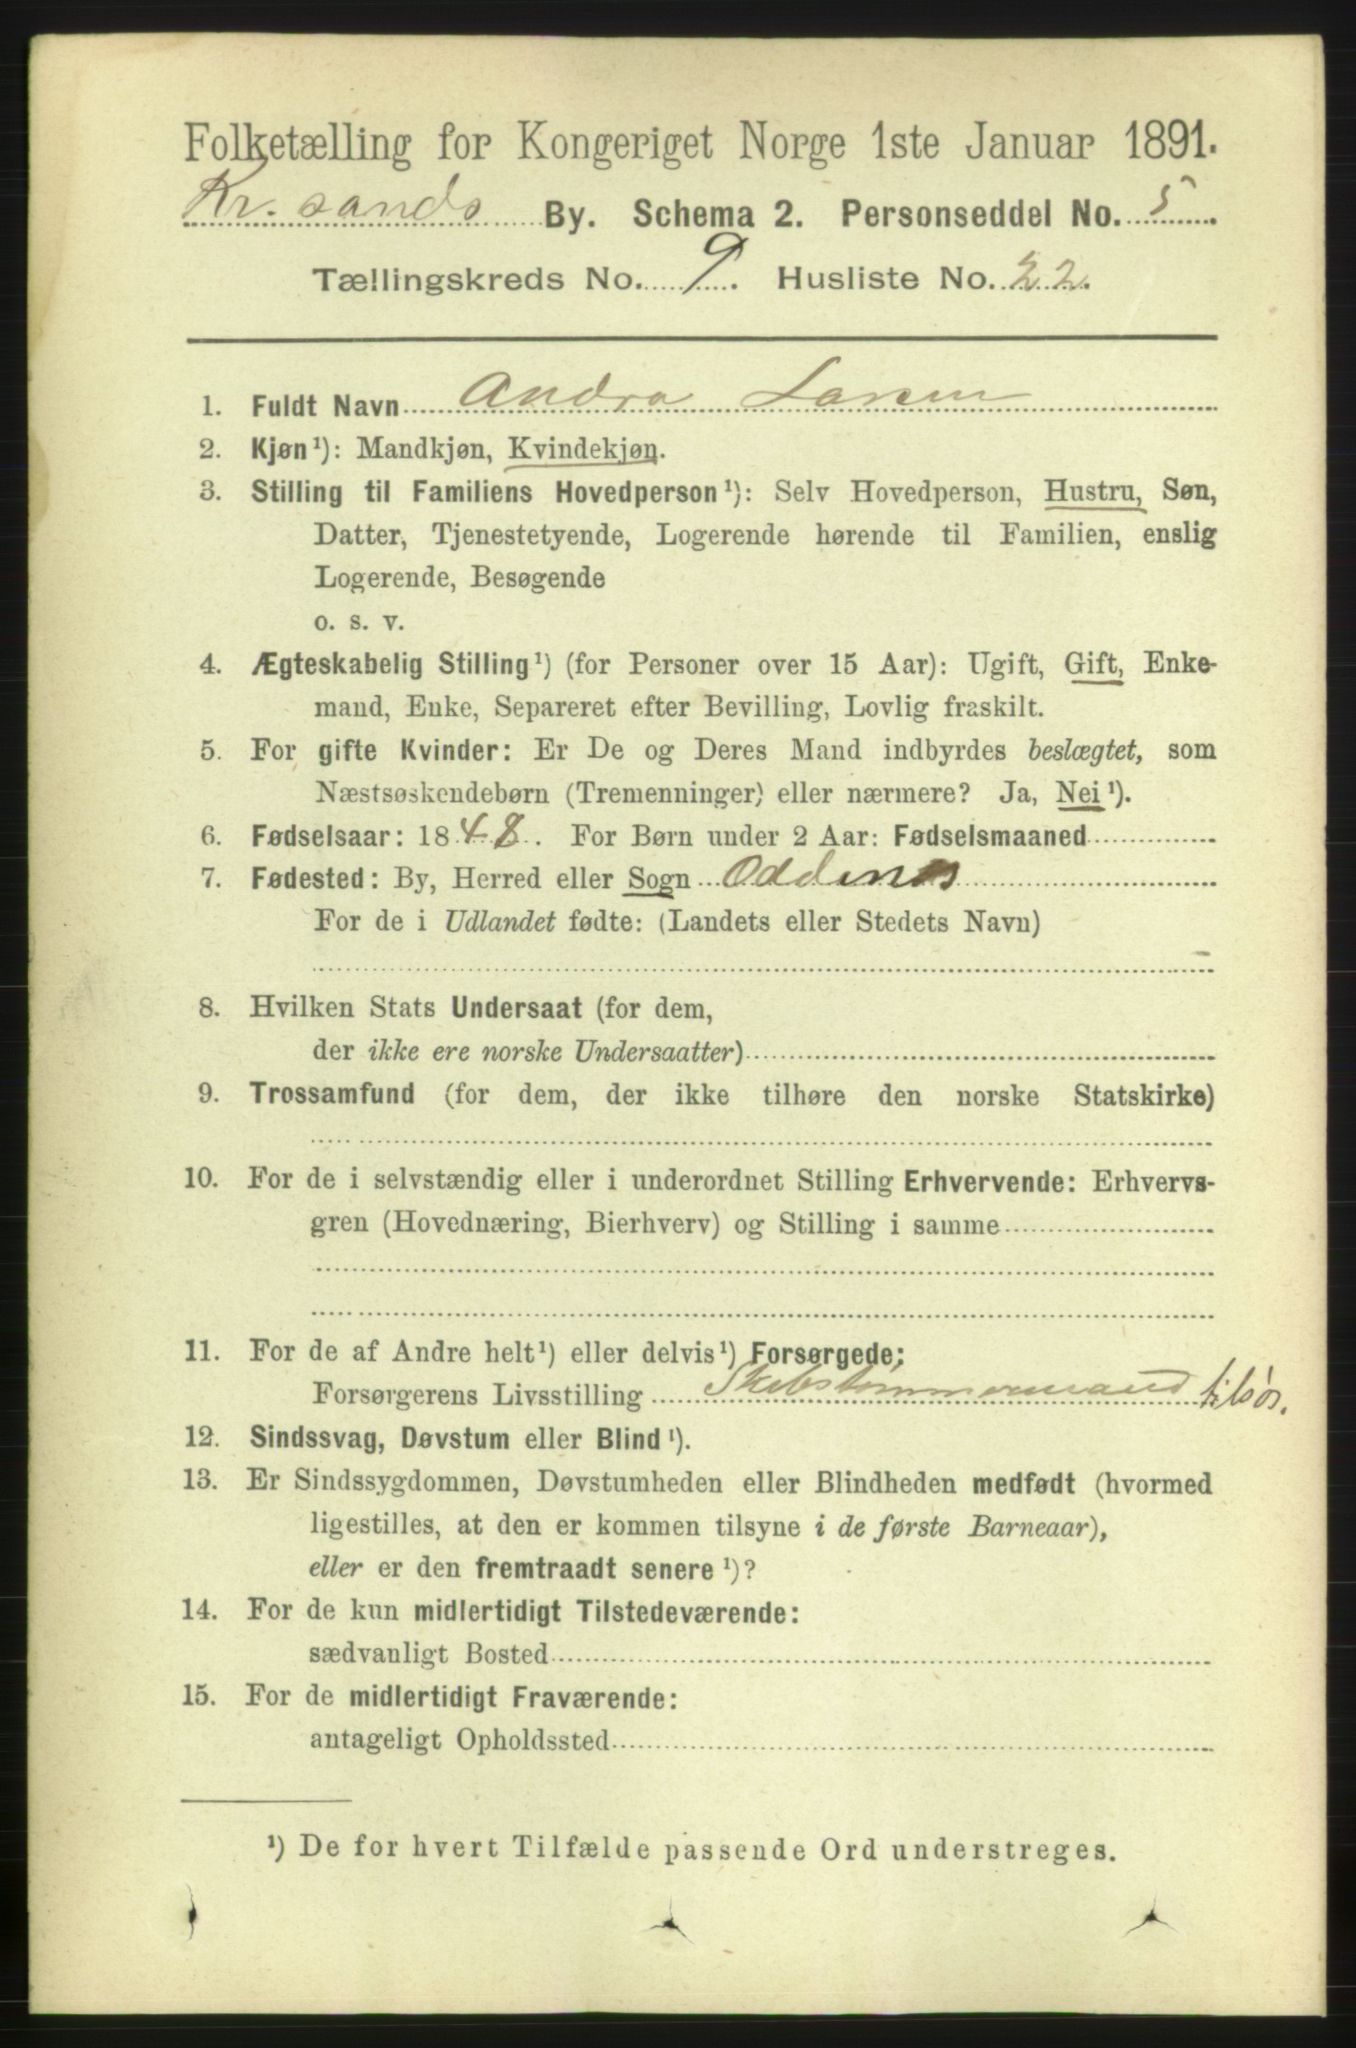 Folketælling for Kongeriget Norge 1ste Januar 1891.
Kr.sands By. Schema 2. Personseddel No. 5.
Tællingskreds No. 9. Husliste No. 22.
1. Fuldt Navn Andra Larsen
2. Kjøn¹): Mandkjøn, Kvindekjøn.
3. Stilling til Familiens Hovedperson¹): Selv Hovedperson, Hustru, Søn,
Datter, Tjenestetyende, Logerende hørende til Familien, enslig
Logerende, Besøgende
o. s. v.
4. Ægteskabelig Stilling¹) (for Personer over 15 Aar): Ugift, Gift, Enke-
mand, Enke, Separeret efter Bevilling, Lovlig fraskilt.
5. For gifte Kvinder: Er De og Deres Mand indbyrdes beslægtet, som
Næstsøskendebørn (Tremenninger) eller nærmere? Ja, Nei¹).
6. Fødselsaar: 1848. For Børn under 2 Aar: Fødselsmaaned
7. Fødested: By, Herred eller Sogn Oddenes
For de i Udlandet fødte: (Landets eller Stedets Navn)
8. Hvilken Stats Undersaat (for dem,
der ikke ere norske Undersaatter)
9. Trossamfund (for dem, der ikke tilhøre den norske Statskirke)
10. For de i selvstændig eller i underordnet Stilling Erhvervende: Erhvervs-
gren (Hovednæring, Bierhverv) og Stilling i samme
11. For de af Andre helt¹) eller delvis¹) Forsørgede:
Forsørgerens Livsstilling Skibstømmermand tilsøs.
12. Sindssvag, Døvstum eller Blind¹).
13. Er Sindssygdommen, Døvstumheden eller Blindheden medfødt (hvormed
ligestilles, at den er kommen tilsyne i de første Barneaar),
eller er den fremtraadt senere¹)?
14. For de kun midlertidigt Tilstedeværende:
sædvanligt Bosted
15. For de midlertidigt Fraværende:
antageligt Opholdssted
¹) De for hvert Tilfælde passende Ord understreges.